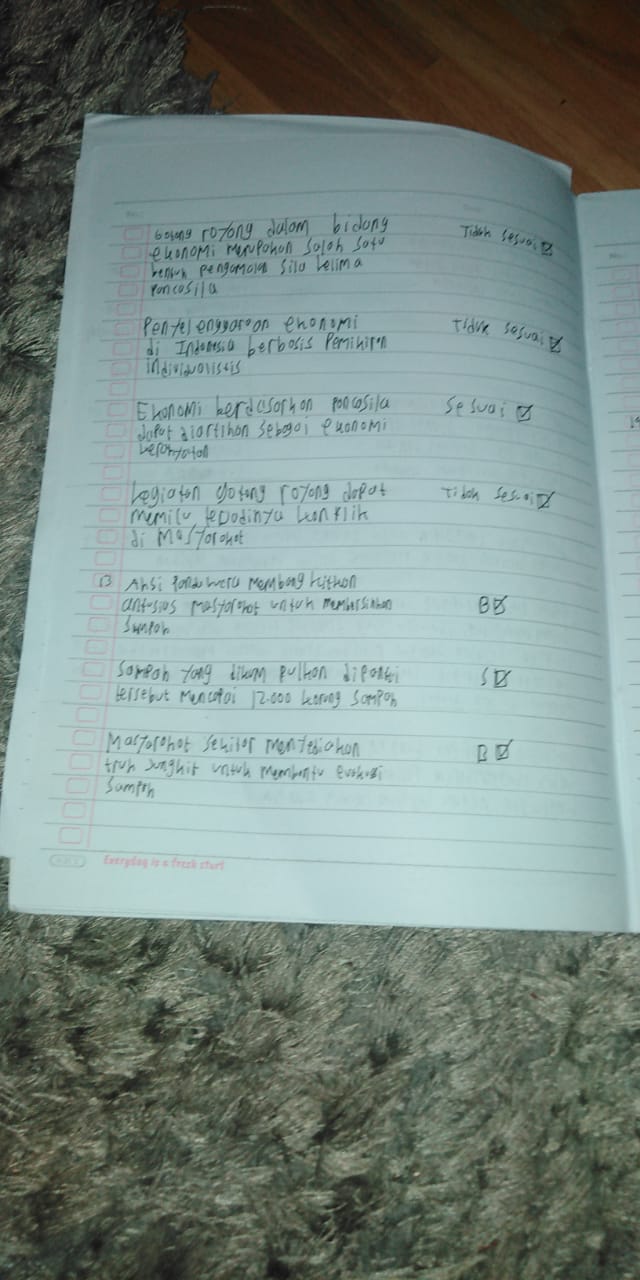 No.:
Date:
Gotong royong dalam bidang Tidak sesuai ☑
ekonomi merupakan salah satu
bentuk pengamalan sila kelima
Pancasila
Penyelenggaraan ekonomi Tidak sesuai ☑
di Indonesia berbasis Pemikiran
individualistis
Ekonomi berdasarkan Pancasila Sesuai ☑
dapat diartikan sebagai ekonomi
kerakyatan
kegiatan gotong royong dapat Tidak sesuai ☑
memicu terjadinya konflik
di Masyarakat
13 Aksi Pandawara Membangkitkan
antusias Masyarakat untuk membersihkan B ☑
Sampah
Sampah yang dikumpulkan dipantai S ☑
tersebut Mencapai 12.000 karung Sampah
Masyarakat Sekitar Menyediakan B ☑
truk Jungkit untuk Membantu evakuasi
Sampah
Everyday is a fresh start